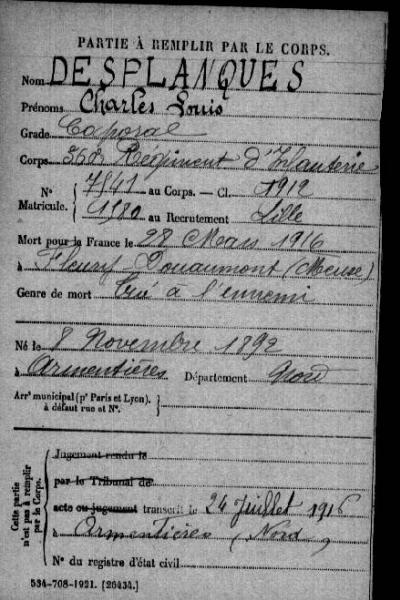 PARTIE À REMPLIR PAR LE CORPS.
Nom DESPLANQUES
Prénoms Charles Louis
Grade Caporal
Corps 362e Régiment d'Infanterie
N° 7541 au Corps. — Cl. 1912
Matricule. 1980 au Recrutement Lille
Mort pour la France le 28 Mars 1916
à Fleury-Douaumont (Meuse)
Genre de mort Tué à l'ennemi
Né le 8 Novembre 1892
à Armentières Département Nord
Arrt municipal (pr Paris et Lyon).
à défaut rue et N°.
Cette partie
n'est pas à remplir
par le Corps.
Jugement rendu le
par le Tribunal de
acte ou jugement transcrit le 24 Juillet 1916
à Armentières (Nord)
N° du registre d'état civil
534-708-1921. [26434.]